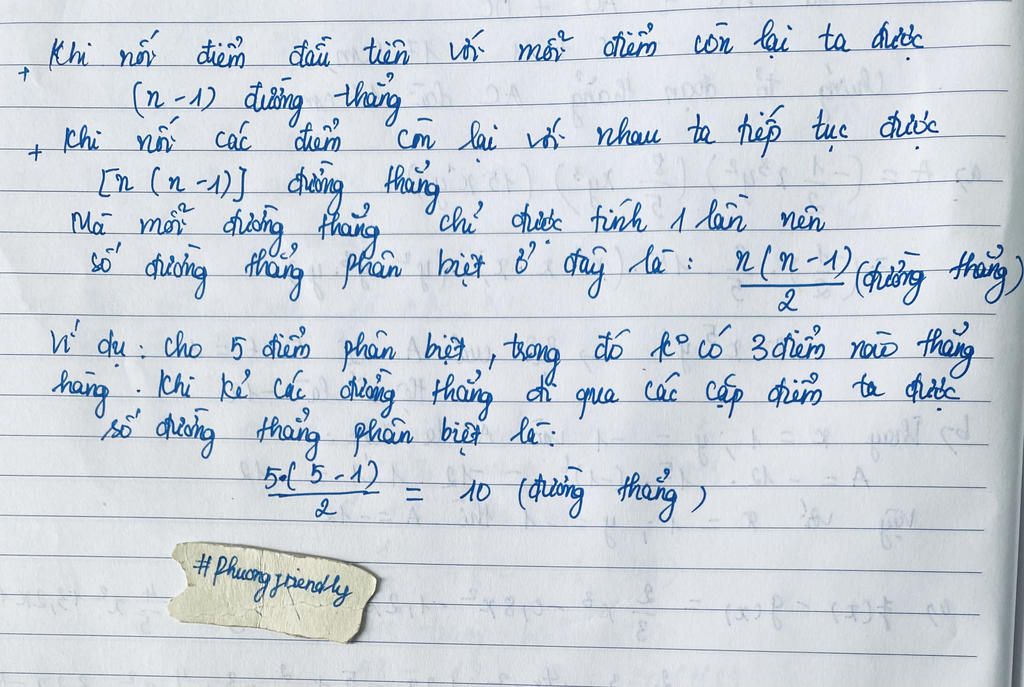 + Khi nối điểm đầu tiên với mỗi điểm còn lại ta được
(n - 1) đường thẳng
+ Khi nối các điểm còn lại với nhau ta tiếp tục được
[n (n - 1)] đường thẳng
Mà mỗi đường thẳng chỉ được tính 1 lần nên
số đường thẳng phân biệt ở đây là : n(n - 1)/2 (đường thẳng)
Ví dụ : cho 5 điểm phân biệt, trong đó k° có 3 điểm nào thẳng
hàng . Khi kẻ các đường thẳng đi qua các cặp điểm ta được
số đường thẳng phân biệt là:
5.(5 - 1)/2 = 10 (đường thẳng)
#Phuongfriendly